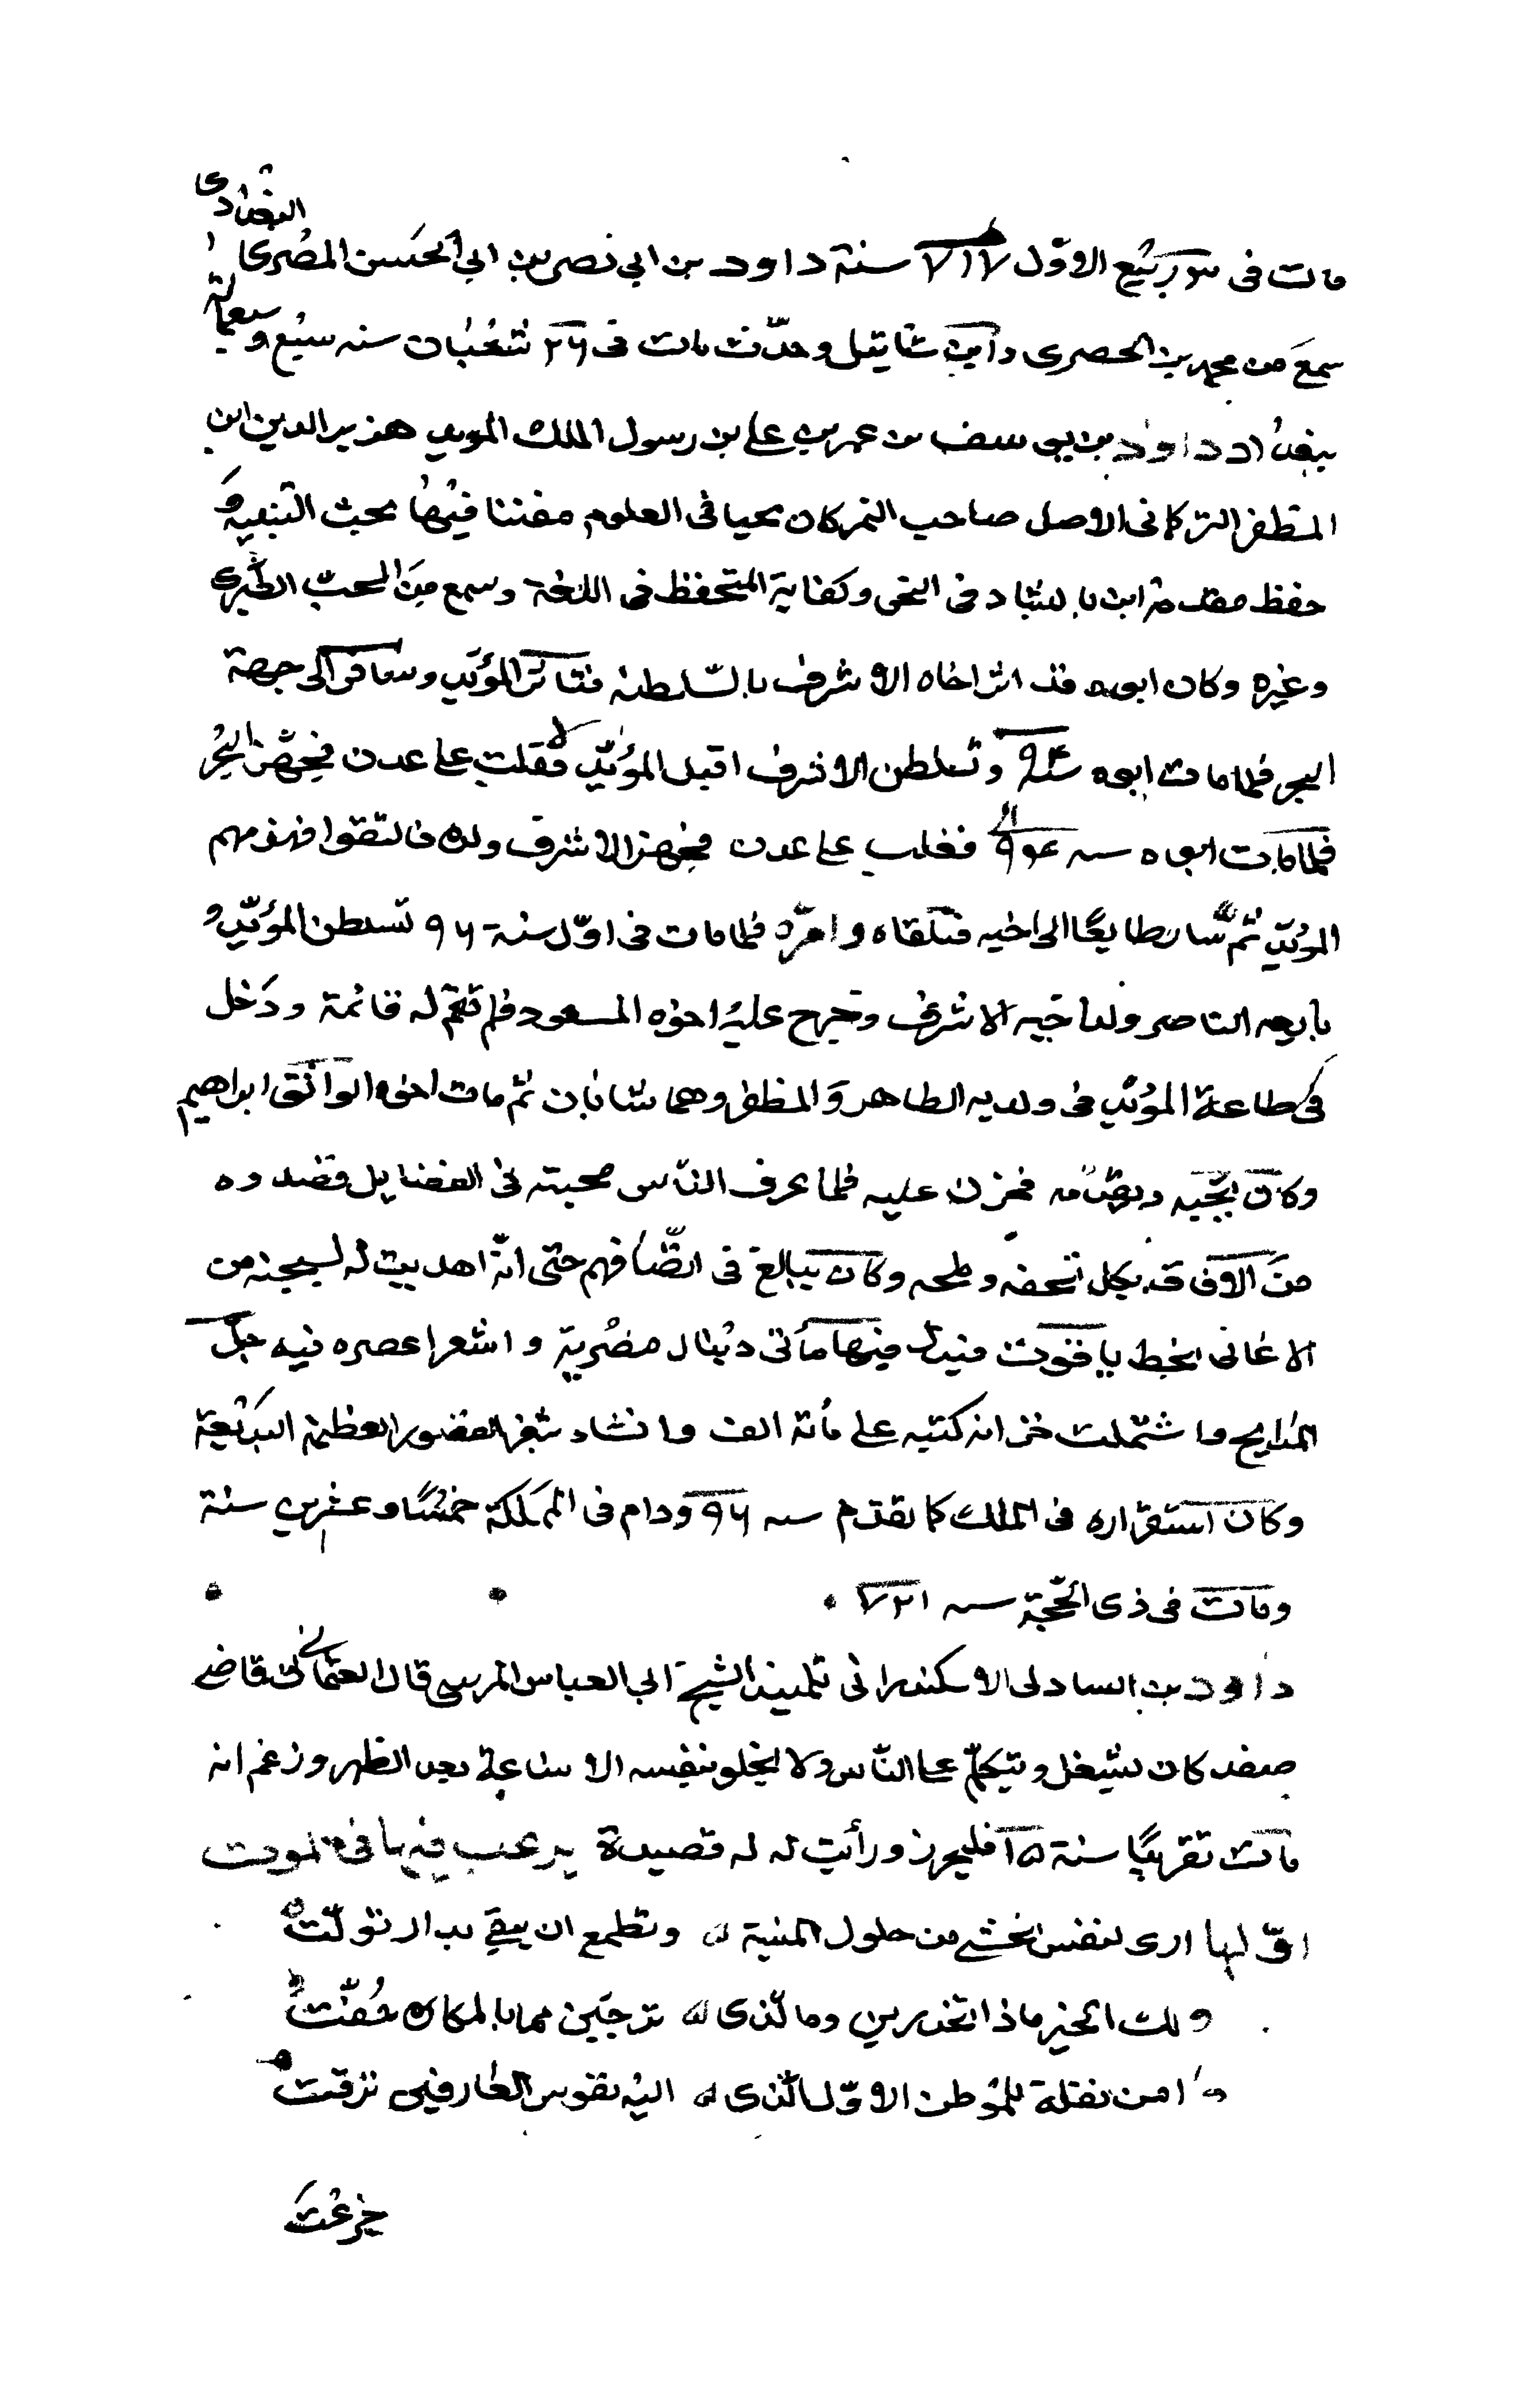 البغدادى
مات فى ربيع الاوّل ٧١٧ سنة داود بن ابي نصر بن ابي الحسن المصرى
سمع من محمد بن الحصرى وابن شاتيل وحدّث مات فى ٢٦ شعبان سنه سبع وسبعمائة
ببغداد داود بن يوسف بن عمر بن على بن رسول الملك المويد هزبر الدين ابن
المظفر التركمانى الاصل صاحب اليمن كان محبا فى العلوم مفننا فيها بحث التنبيه و
حفظ مقدمة ابن بابشاد فى النحو وكفاية المتحفظ فى اللغة وسمع من المحب الطبرى
وغيره وكان ابوه قد اثر اخاه الاشرف بالسّلطنة فتاثر المؤيّد وسافر الى جهة
البحر فلما مات ابوه سنة ٩٤ وتسلطن الاشرف اقبل المؤيّد على عدن فجهّز
فلما مات ابوه سنه ٩٤ فغلب على عدن فجهز الاشرف ولده فالتقوا فهزمهم
المؤيّد ثم سار طايعا الى اخيه فتلقاه و فلما مات فى اوّل سنة ٩٦ تسلطن المؤيّد و
بايعه الناصر ولد اخيه الاشرف وخرج عليه اخوه المسعود فلم تقم له قائمة ودخل
فى طاعة المؤيّد فى ولديه الظاهر والمظفر وهما شابان ثم مات اخوه الواثق ابراهيم
وكان يحبّه فحزن عليه فلما عرف الناس محبته فى الفضايل قصدوه
من الآفاق بكل تحفه وكان يبالغ فى انصافهم حتى انّه اهديت له نسخة من
الاغانى بخط ياقوت فبذل فيها مأتى دينار مصرية و اشعرا عصره فيه جلّ
المدايح واشتملت خزانة كتبه على مائة الف وانشاد القصور العظيمة البديعة
وكان استقراره فى الملك كما تقدم سنه ٩٦ ودام فى المملكة خمسا وعشرين سنة
ومات فى ذى الحجّة سنه ٧٢١
داود بن السادلى الاسكندرانى تلميذ الشيخ ابى العباس المرسى قال العثمانى قاضى
صفد كان يشغل ويتكلّم على النّاس ولا يخلو بنفسه الا ساعة بعد الظهر وزعم انه
مات تقريبا سنة ١٥ فليحرر ورأيت له له قصيدة يرغب فيها فى الموت
اوّلها ارى لنفس تخشى من حلول المنية وتطمع ان يبقى بدار تولّت
لك الخير ماذا تحذرين وما الّذى ترجّين مما بالمكاره حُفّت
امن نقلة للموطن الاوّل الّذى اليه نفوس العارفين ترقت
جزعت